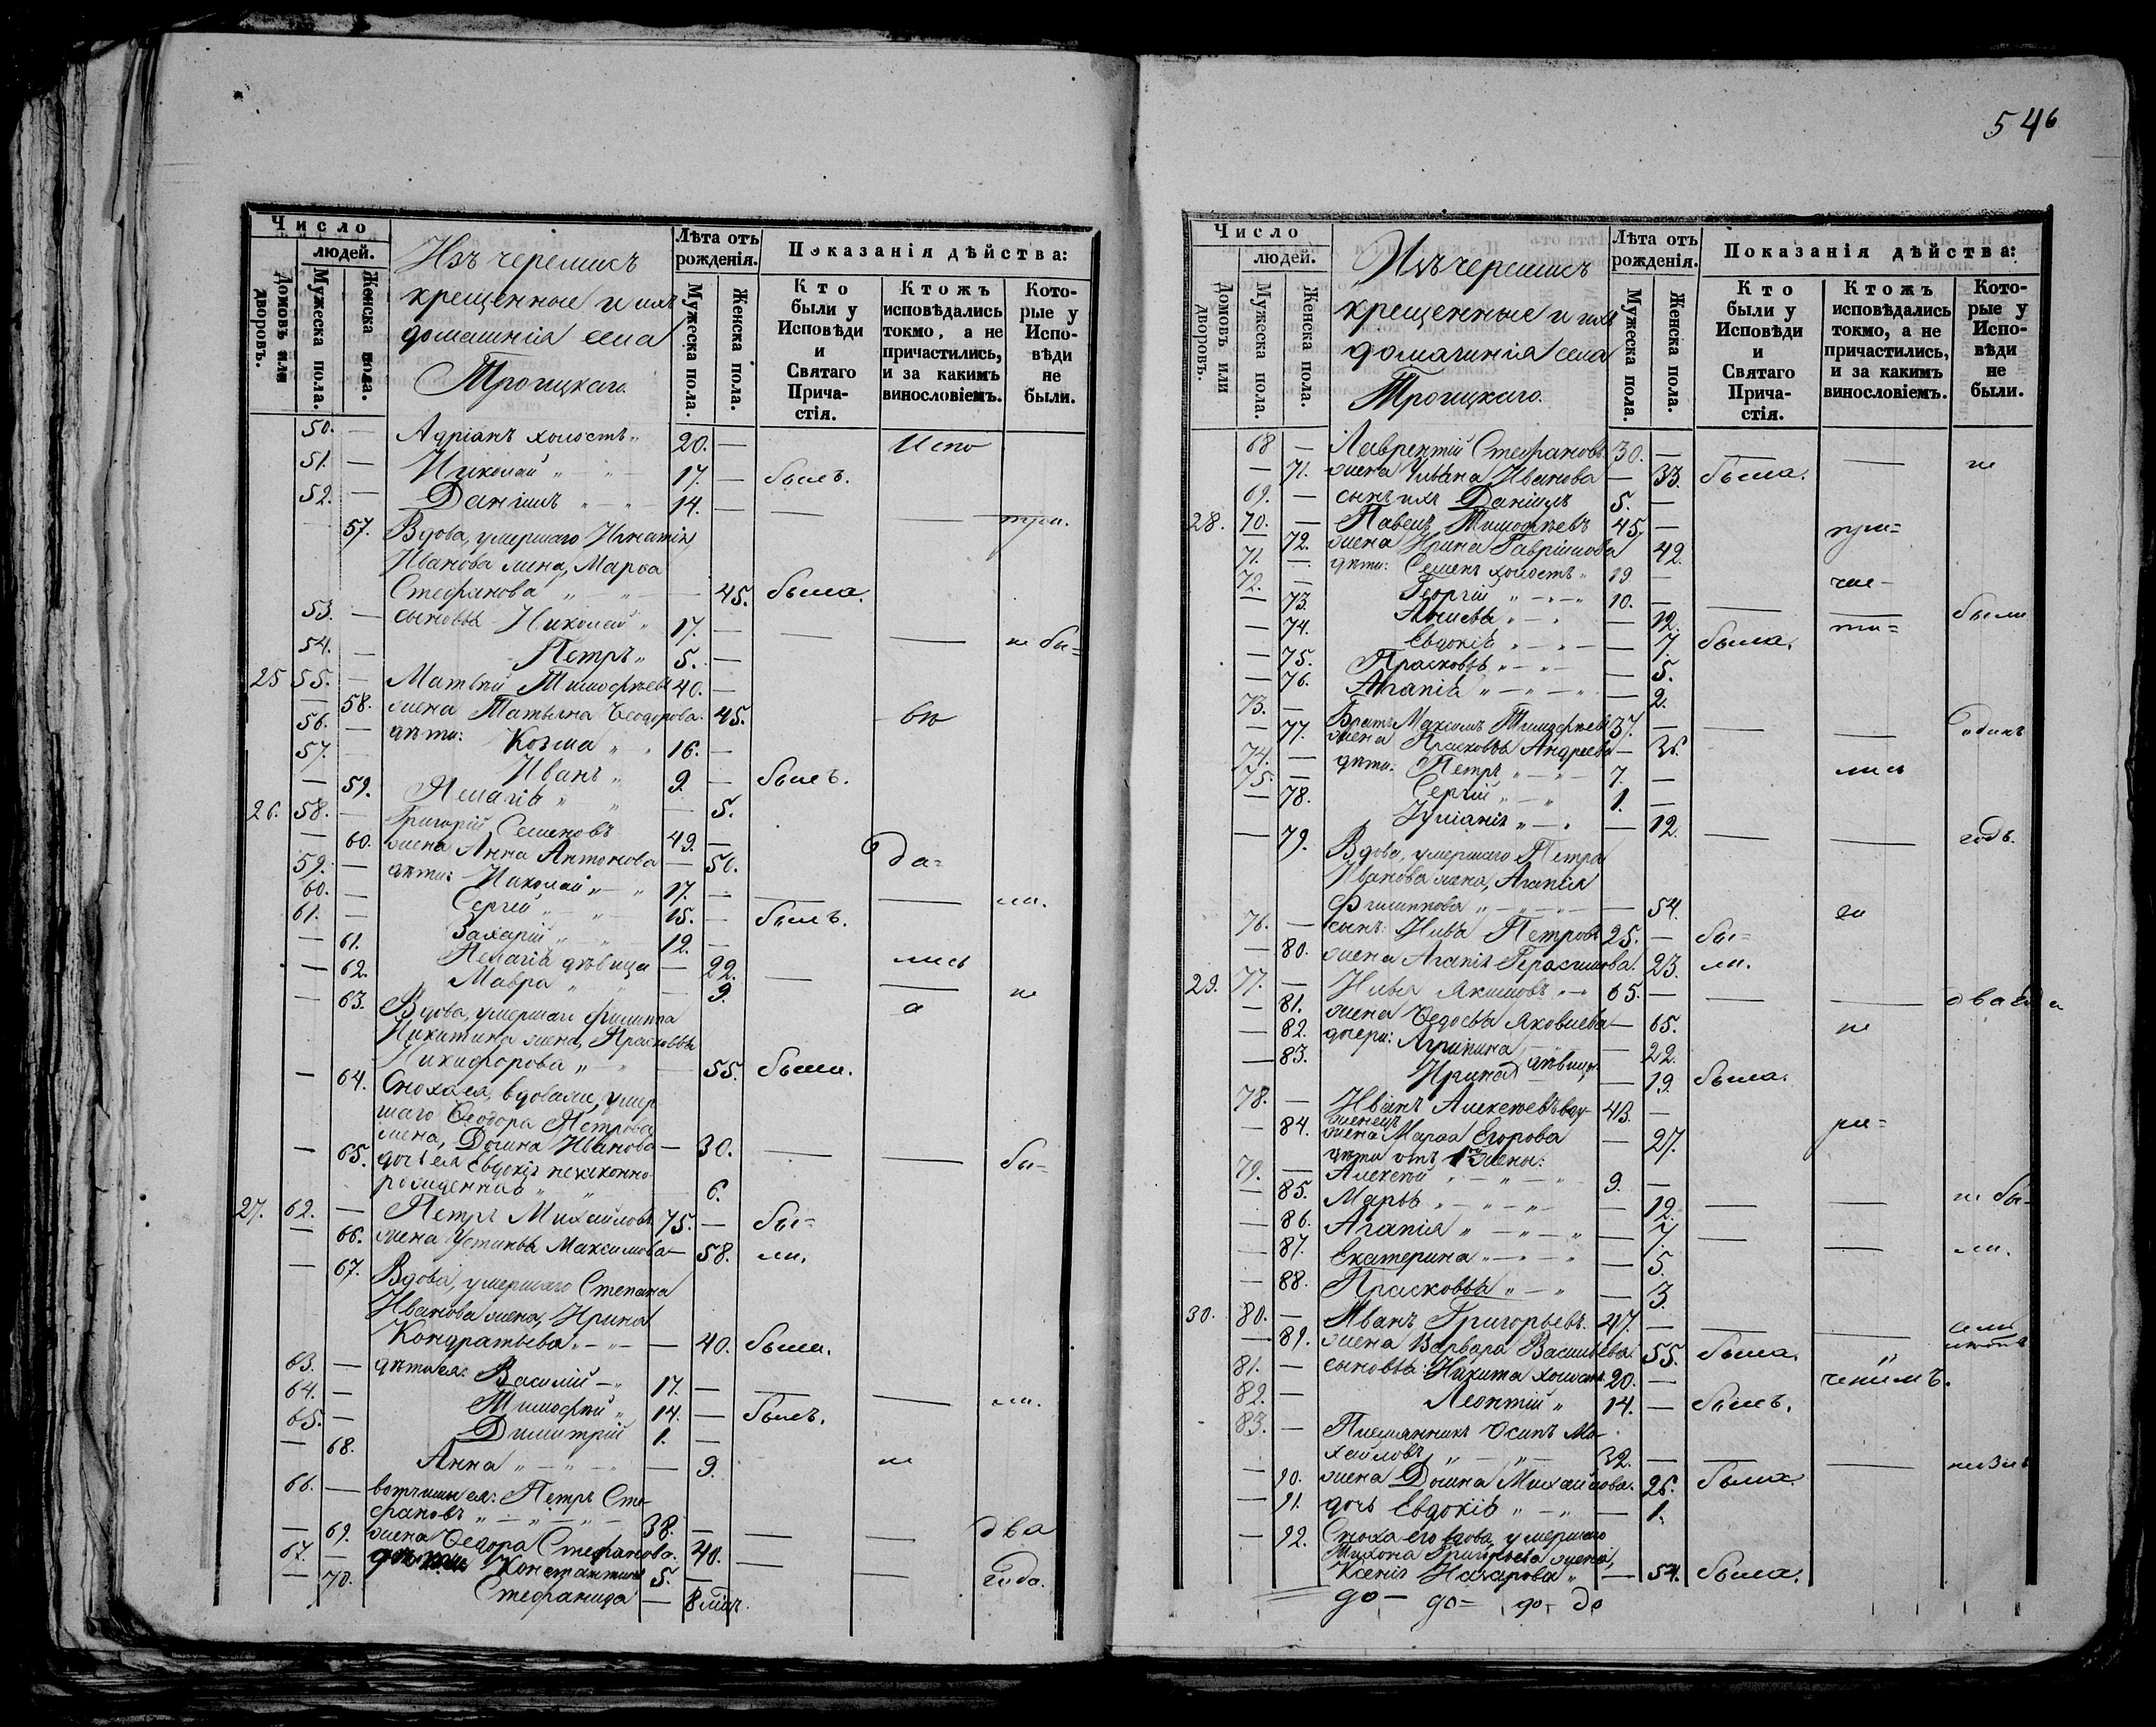 Число
людей.
Домовъ или дворовъ.
Мужеска пола.
Женска пола.
Изъ черемисъ
крещенные и ихъ
домашнія села
Троицкаго.
Лѣта отъ
рожденія.
Мужеска пола.
Женска пола.
Показанія дѣйства:
Кто
были у
Исповѣди
и
Святаго
Прича-
стія.
Ктожъ
исповѣдались
токмо, а не
причастились,
и за какимъ
винословіемъ.
Кото-
рые у
Испо-
вѣди
не
были.
50. — Адріанъ холостъ „ 20. — Испо
51. — Николай „ — „ 17. — былъ.
52. — Даніилъ „ — „ 14. — — — три.
57. Вдова, умершаго Игнатія
Иванова жена, Марѳа
Стефанова „ — „ — 45. была.
53. — сыновья Николай „ 17. — — — не бы=
54. — Петръ „ 5. —
25 55. — Матвѣй Тимофѣевъ 40. —
— 58. жена Татьяна Ѳеодорова. 45. вѣ
56. — дѣти: Козма „ „ 16. —
57. — Иванъ „ 9. — былъ.
— 59. Пелагія „ — „ — 5.
26. 58. — Григорій Семеновъ 49. —
— 60. жена Анна Антонова — 50. да=
59. — дѣти: Николай „ — „ 17. —
60. — Сергій „ — „ 15. — — — ли.
61. — Захарій „ — „ 12. — былъ.
— 61. Пелагія дѣвица — 22. лись
— 62. Мавра „ „ — 9. — — не
— 63. Вдова, умершаго Филиппа а
Никитина жена, Прасковья
Никифорова „ — „ — 55. была.
— 64. Сноха ея, вдовая, умер-
шаго Ѳеодора Петрова
жена, Домна Иванова — 30. — — бы=
— 65. дочь ея Евдокія незаконно-
рожденная „ „ 6.
27. 62. — Петръ Михайловъ 75. — бы=
— 66. жена Устинья Максимова — 58. ли.
— 67. Вдова, умершаго Степана
Иванова жена, Ирина
Кондратьева „ — „ — 40. была.
63. — дѣти ея: Василій — „ 17. —
64. — Тимофѣй „ 14. — — — ли.
65. — Димитрій 1. — былъ.
— 68. Анна „ — „ — „ — 9. не
66. — Петръ Сте-
фановъ „ — „ — „ — 38. — — — два
— 69. жена Ѳедора Стефанова. 40.
67. — Константинъ 5. — — — года.
— 70. Стефанида — 8 мѣц.
546
Число
людей.
Домовъ или дворовъ.
Мужеска пола.
Женска пола.
Изъ черемисъ
крещенные и ихъ
домашнія села
Троицкаго.
Лѣта отъ
рожденія.
Мужеска пола.
Женска пола.
Показанія дѣйства:
Кто
были у
Исповѣди
и
Святаго
Прича-
стія.
Ктожъ
исповѣдались
токмо, а не
причастились,
и за какимъ
винословіемъ.
Кото-
рые у
Испо-
вѣди
не
были.
68 — Лаврентій Стефановъ. 30. — — — не
— 71. жена Ульяна Иванова — 33. была.
69. — сынъ ихъ Даніилъ 5. —
28. 70. — Павелъ Тимофѣевъ 45. — при=
— 72. жена Ирина Гавріилова 42.
71. — дѣти: Семенъ холостъ „ 19. — ча=
72. — Георгій „ — „ — „ 10. — — — были
— 73. Анисья „ — „ — 12. ти=
— 74. Евдокія „ — „ — 7. была.
— 75. Прасковья „ — „ — 5.
— 76. Агапія „ — „ — „ — 2.
73. — Братъ Максимъ Тимофѣевъ 37. — — — одинъ
— 77. жена Прасковья Андреева — 36.
74. — дѣти: Петръ „ — „ — 7. — лись
75. — Сергій „ — „ 1. —
— 78. Іуліанія „ — „ — 12. — — годъ.
— 79. Вдова, умершаго Петра
Иванова жена, Агапія
Филиппова „ — „ — „ — — 54. за
76. — сынъ: Илья Петровъ 25. — бы=
— 80. жена Агапія Герасимова. 23. ли.
29. 77. — Илья Якимовъ „ — „ 65. — — — два года
— 81. жена Ѳедосья Яковлева — 65. не
— 82. дочери: Агрипина — 22.
— 83. Ирина дѣвицы. — 19. была.
78. — Иванъ Алексѣевъ вдо- 43. —
женецъ
— 84. жена Марѳа Егорова — 27. ра=
дѣти отъ 1й жены:
79. — Алексѣй „ — „ — „ 9. —
— 85. Марья „ — „ — „ — — 12. — — не бы=
— 86. Агапія „ — „ — „ — 7.
— 87. Екатерина „ — „ — „ — 5. — — ли.
— 88. Прасковья „ — „ — 3.
30. 80. — Иванъ Григорьевъ. 47. — — —
— 89. жена Варвара Васильева. 55. была. „
81. — сыновья: Никита холостъ. 20. — ченіемъ.
82. — Леонтій „ 14. — былъ.
83. — Племянникъ Осипъ Ми-
хайловъ „ — „ — 32. — — —
— 90. жена Домна Михайлова. 26. была.
— 91. дочь Евдокія „ — „ — 1.
— 92. Сноха его вдова, умершаго
Тихона Григорьева жена,
Ксенія Назарова „ — 54. была.
до — до = до - до